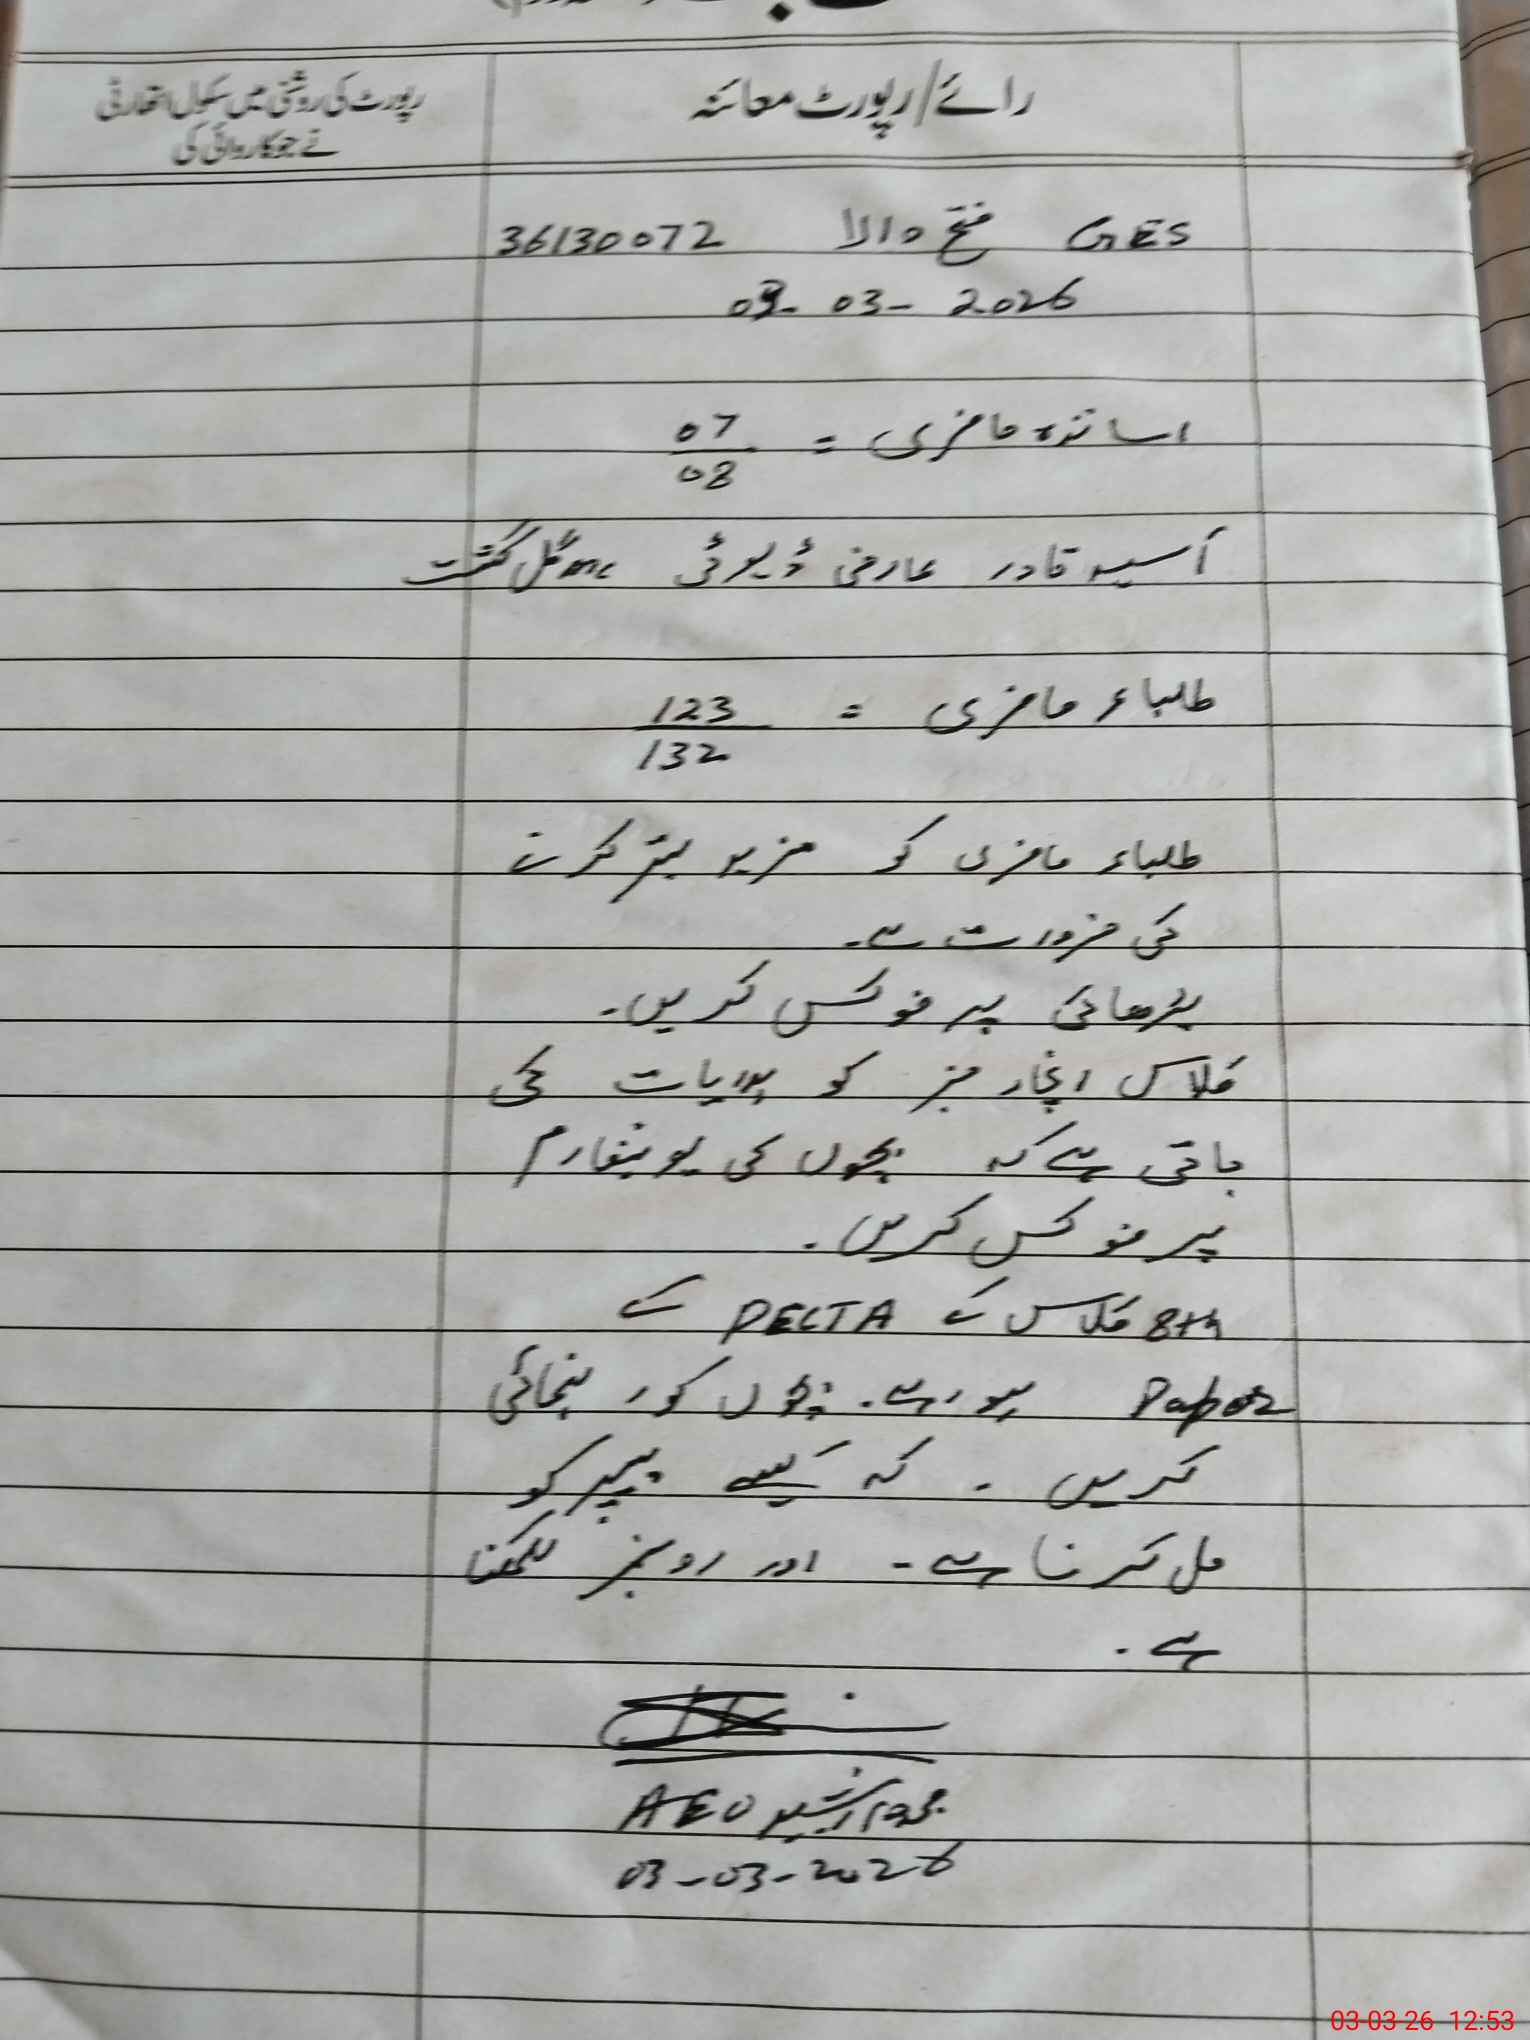 رائے/رپورٹ معائنہ
رپورٹ کی روشنی میں سکول اتھارٹی
نے جو کاروائی کی
GES فتح والا 36130072
03-03-2026
اساتذہ حاضری = 07/08
آسیہ قادر عارضی ڈیوٹی گل گشت
طالباء حاضری = 123/132
طلباء حاضری کو مزید بہتر کرنے
کی ضرورت ہے۔
پڑھائی پر فوکس کریں۔
کلاس انچارجز کو ہدایات کی
جاتی ہے کہ بچوں کی یونیفارم
پر فوکس کریں۔
8th کلاس کے DELTA کے
Paper ہو رہے۔ بچوں کو رہنمائی
کریں۔ کہ کیسے پیپر کو
حل کرنا ہے۔ اور رولنمبر لکھنا
ہے۔
راشید AEO
03-03-2026
03-03-26 12:53